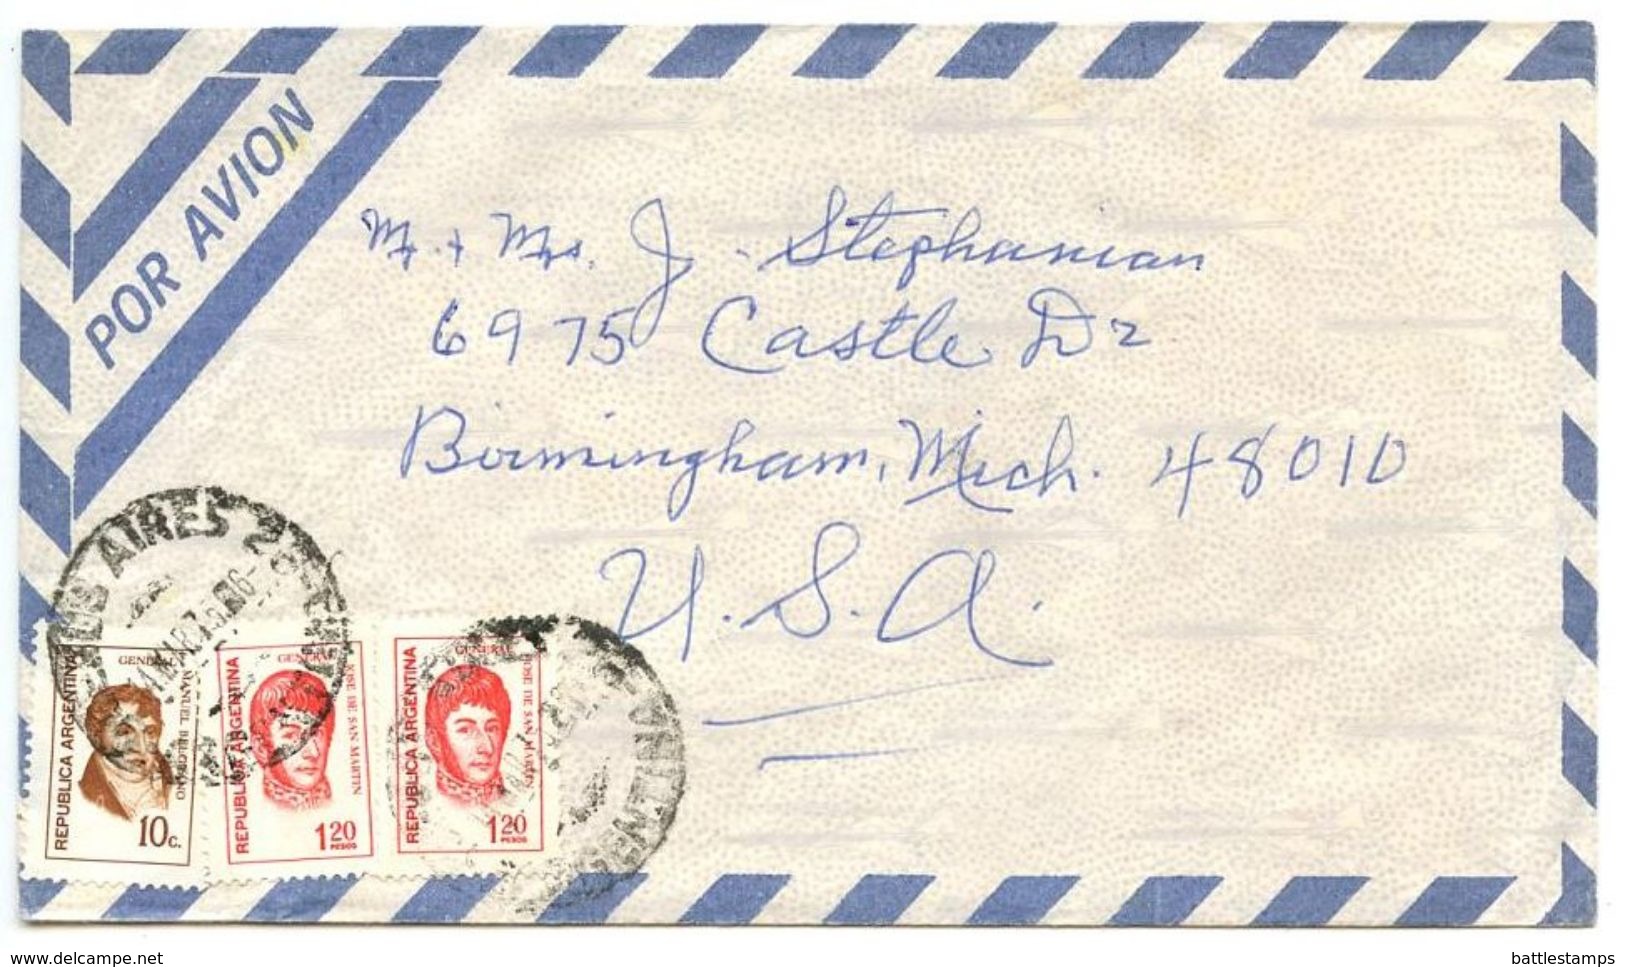 POR AVION
Mr. + Mrs. J. Stephanian
6975 Castle Dr
Birmingham, Mich. 48010
U.S.A.
AIRES 28
MAR 75
REPUBLICA ARGENTINA
GENERAL MANUEL BELGRANO
10 c.
REPUBLICA ARGENTINA
GENERAL JOSE DE SAN MARTIN
1 20 PESOS
REPUBLICA ARGENTINA
GENERAL JOSE DE SAN MARTIN
1 20 PESOS
www.delcampe.net
battlestamps